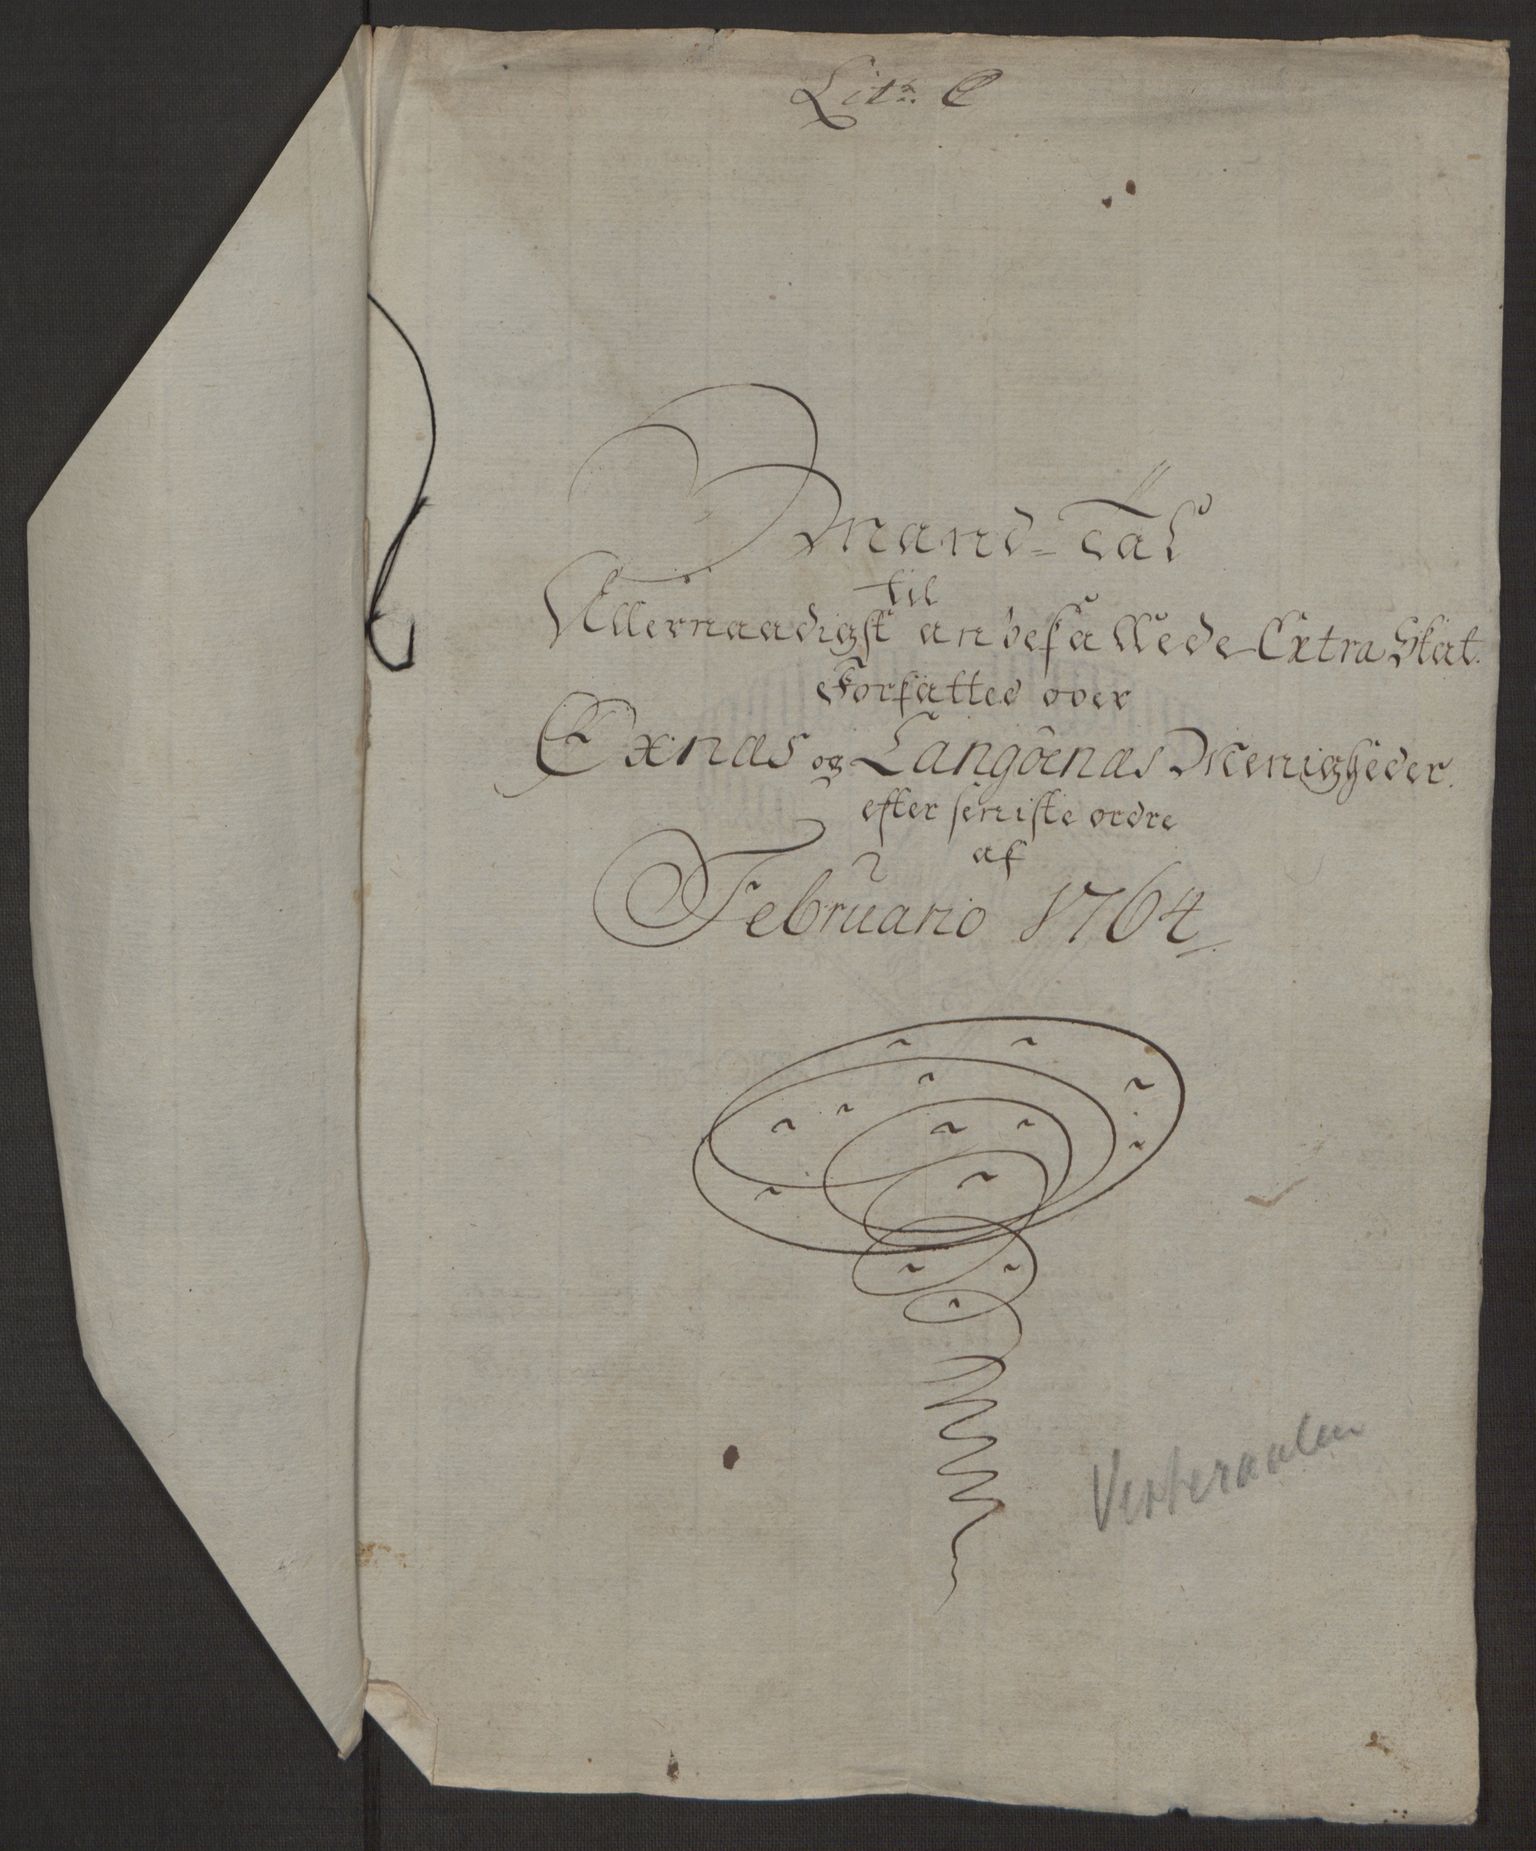 Litr. C
Mand-Tal
til
Allernaadigst anbefallede Extra Skat.
Forfatted over
Øxnæs og Langøenæs Menigheder.
efter seniste ordre
af
Februario 1764
Vesteraalen